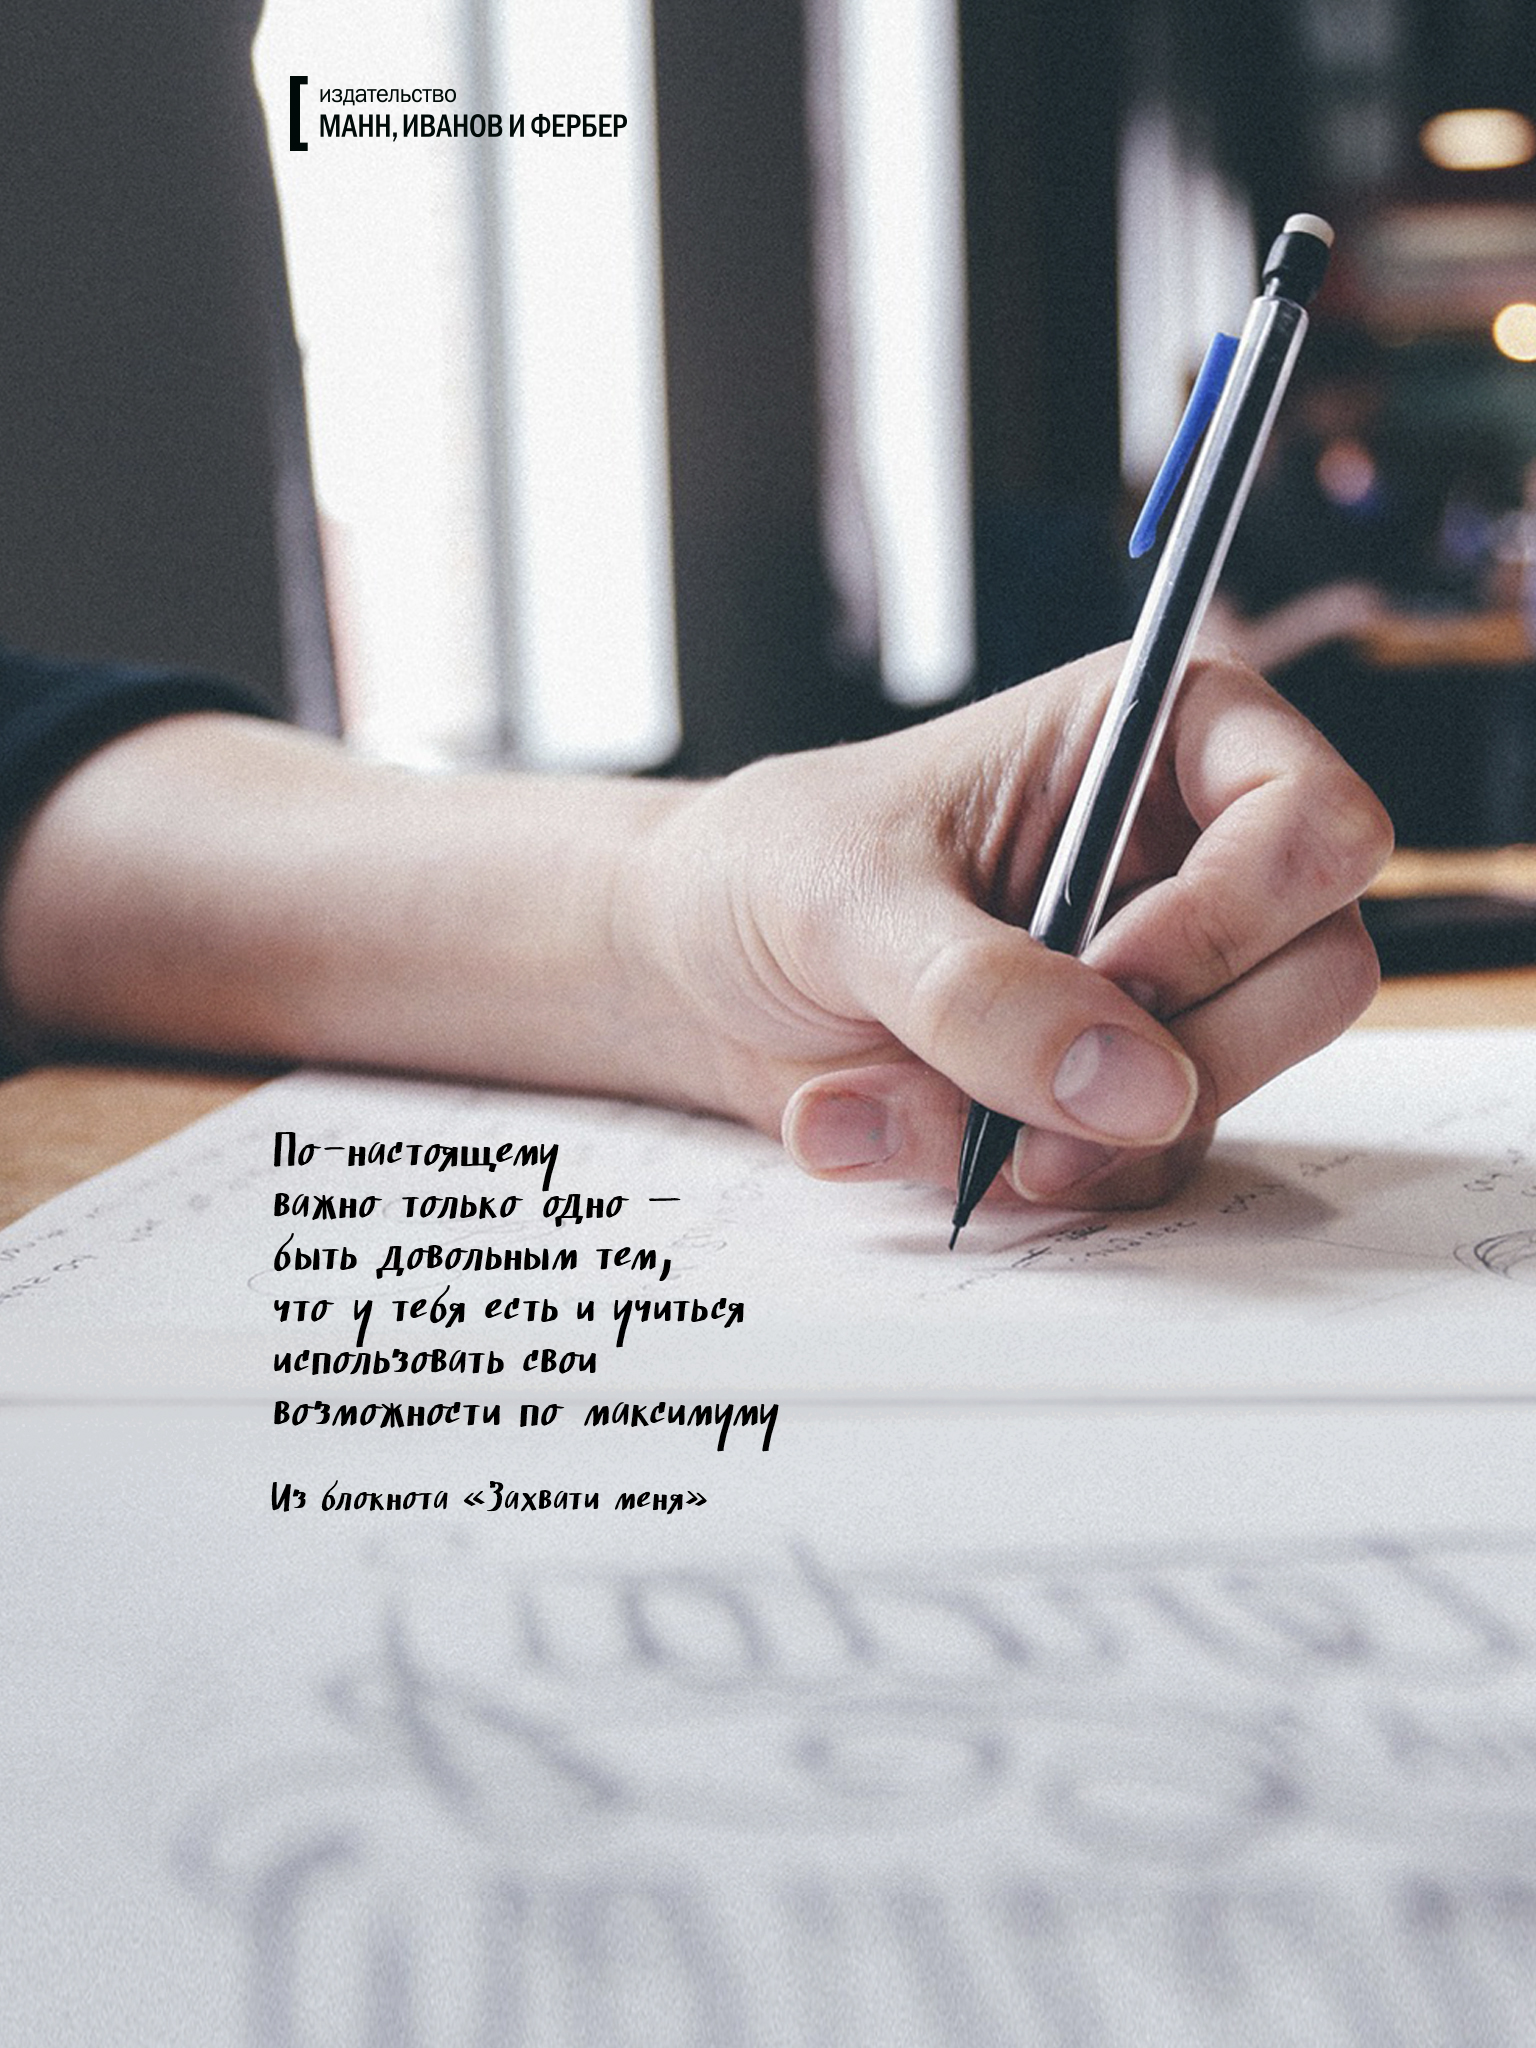 издательство
МАНН, ИВАНОВ И ФЕРБЕР
По-настоящему
важно только одно —
быть довольным тем,
что у тебя есть и учиться
использовать свои
возможности по максимуму
Из блокнота «Захвати меня»